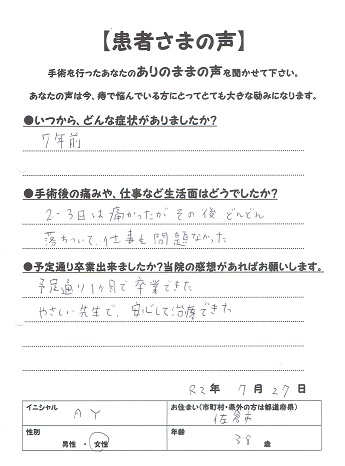 【患者さまの声】
手術を行ったあなたのありのままの声を聞かせて下さい。
あなたの声は今、痔で悩んでいる方にとってとても大きな励みになります。
●いつから、どんな症状がありましたか?
7年前
●手術後の痛みや、仕事など生活面はどうでしたか?
2-3日は痛かったがその後どんどん
落ちついて、仕事も問題なかった
●予定通り卒業出来ましたか?当院の感想があればお願いします。
予定通り1ヶ月で卒業できた
やさしい先生で、安心して治療できた
R2年 7月27日
イニシャル AY
お住まい(市町村・県外の方は都道府県) 佐倉市
性別 男性・女性
年齢 38歳